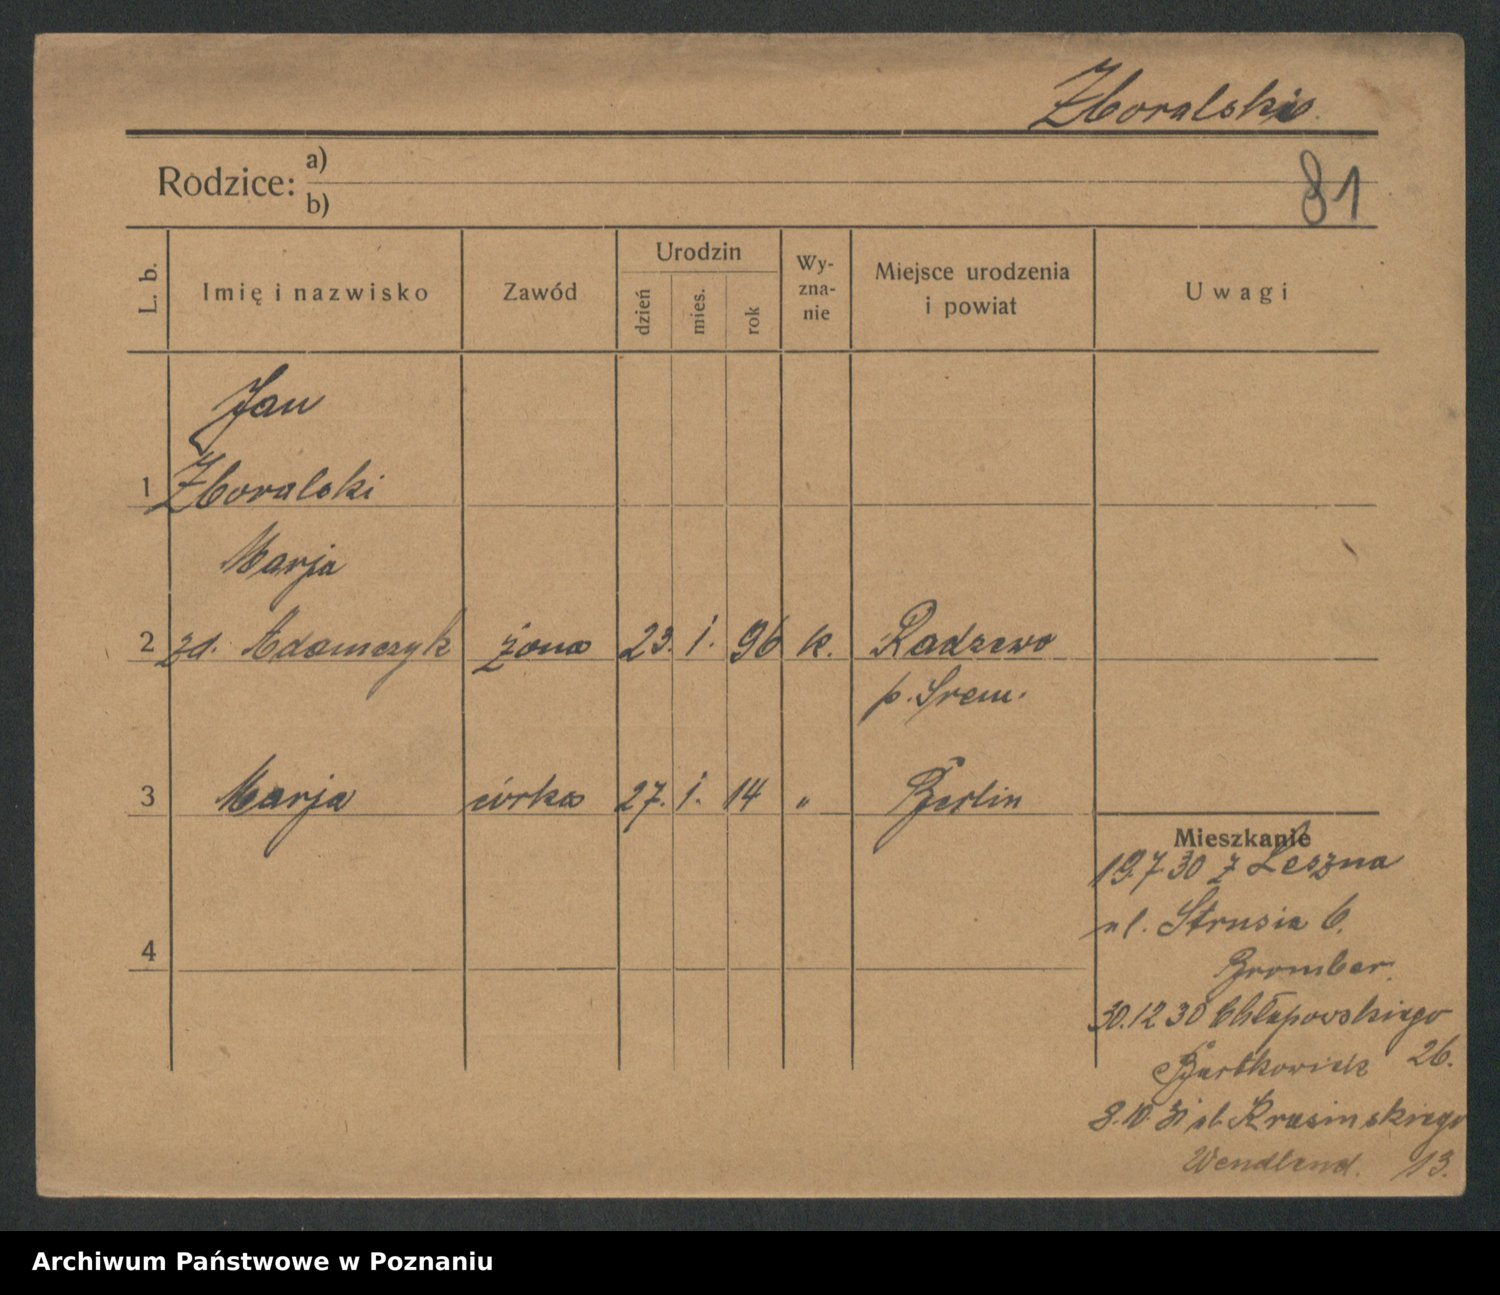 Zboralski
Rodzice: a)
b)
81
L. b.
Imię i nazwisko
Zawód
Urodzin
dzień
mies.
rok
Wy-
zna-
nie
Miejsce urodzenia
i powiat
Uwagi
Jan
1 Zboralski
Marja
2 zd. Adamczyk żona 23. 1. 96 k. Radzewo
p. Śrem.
3 Marja córka 27. 1. 14 " Berlin
Mieszkanie
19.7.30 z Leszna
ul. Strusia 6.
Bromber
4
30.12.30 Chłapowskiego
Bartkowiak 26.
8.10.31 ul. Krasińskiego
Wendland. 13.
Archiwum Państwowe w Poznaniu